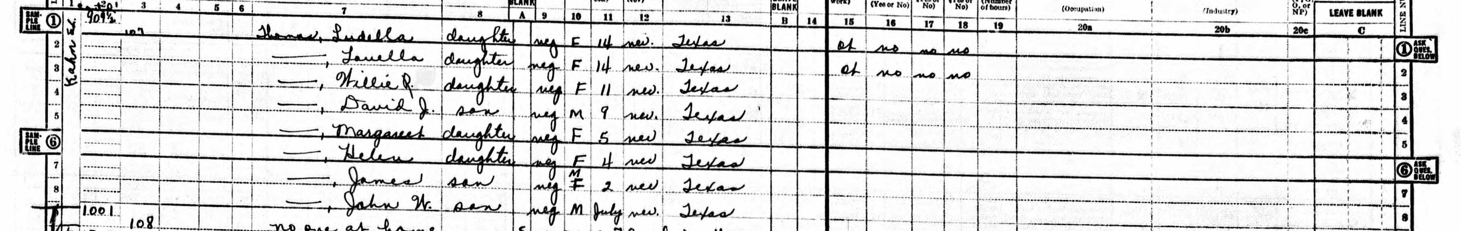 1 2 3 4 5 6 7 8 BLANK A 9 10 11 12 13 LEAVE BLANK B 14 15 work) 16 (Yes or No) 17 No) 18 19 (Number of hours) (Occupation) 20a (Industry) 20b O, or NP) 20c LEAVE BLANK C LINE N
SAM- PLE LINE 1 909½ 107 Thomas, Ludella daughter neg F 14 nev. Texas ot no no no 1 ASK QUES. BELOW
2 ——, Louella daughter neg F 14 nev. Texas ot no no no 2
3 ——, Willie R. daughter neg F 11 nev. Texas 3
4 ——, David J. son neg M 9 nev. Texas 4
5 ——, Margaret daughter neg F 5 nev Texas 5
SAM- PLE LINE 6 ——, Helen daughter neg F 4 nev Texas 6 ASK QUES. BELOW
7 ——, James son neg M F 2 nev Texas 7
8 ——, John W. son neg M July nev. Texas 8
1001 108 no one at home